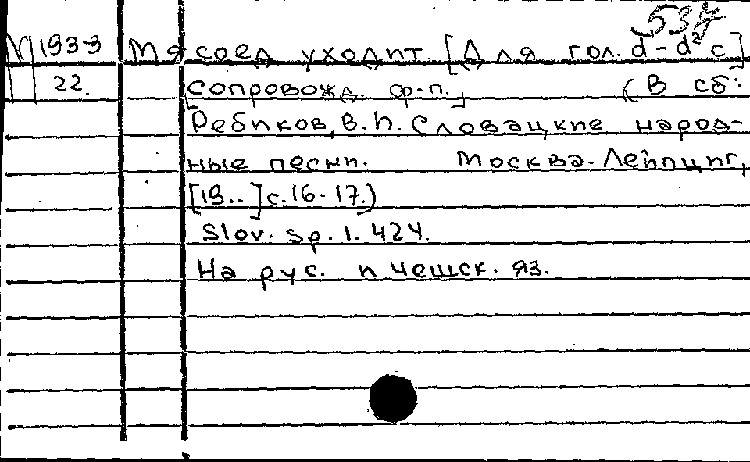 537
М 1933 Мясоед уходит [Для гол. d-d² с]
22. [сопровожд. ф-п.] (В сб:
Ребиков, В.И. Словацкие народ-
ные песни. Москва-Лейпциг,
[19..] с.16-17.)
Slov. sp. 1. 424.
На рус. и чешск. яз.